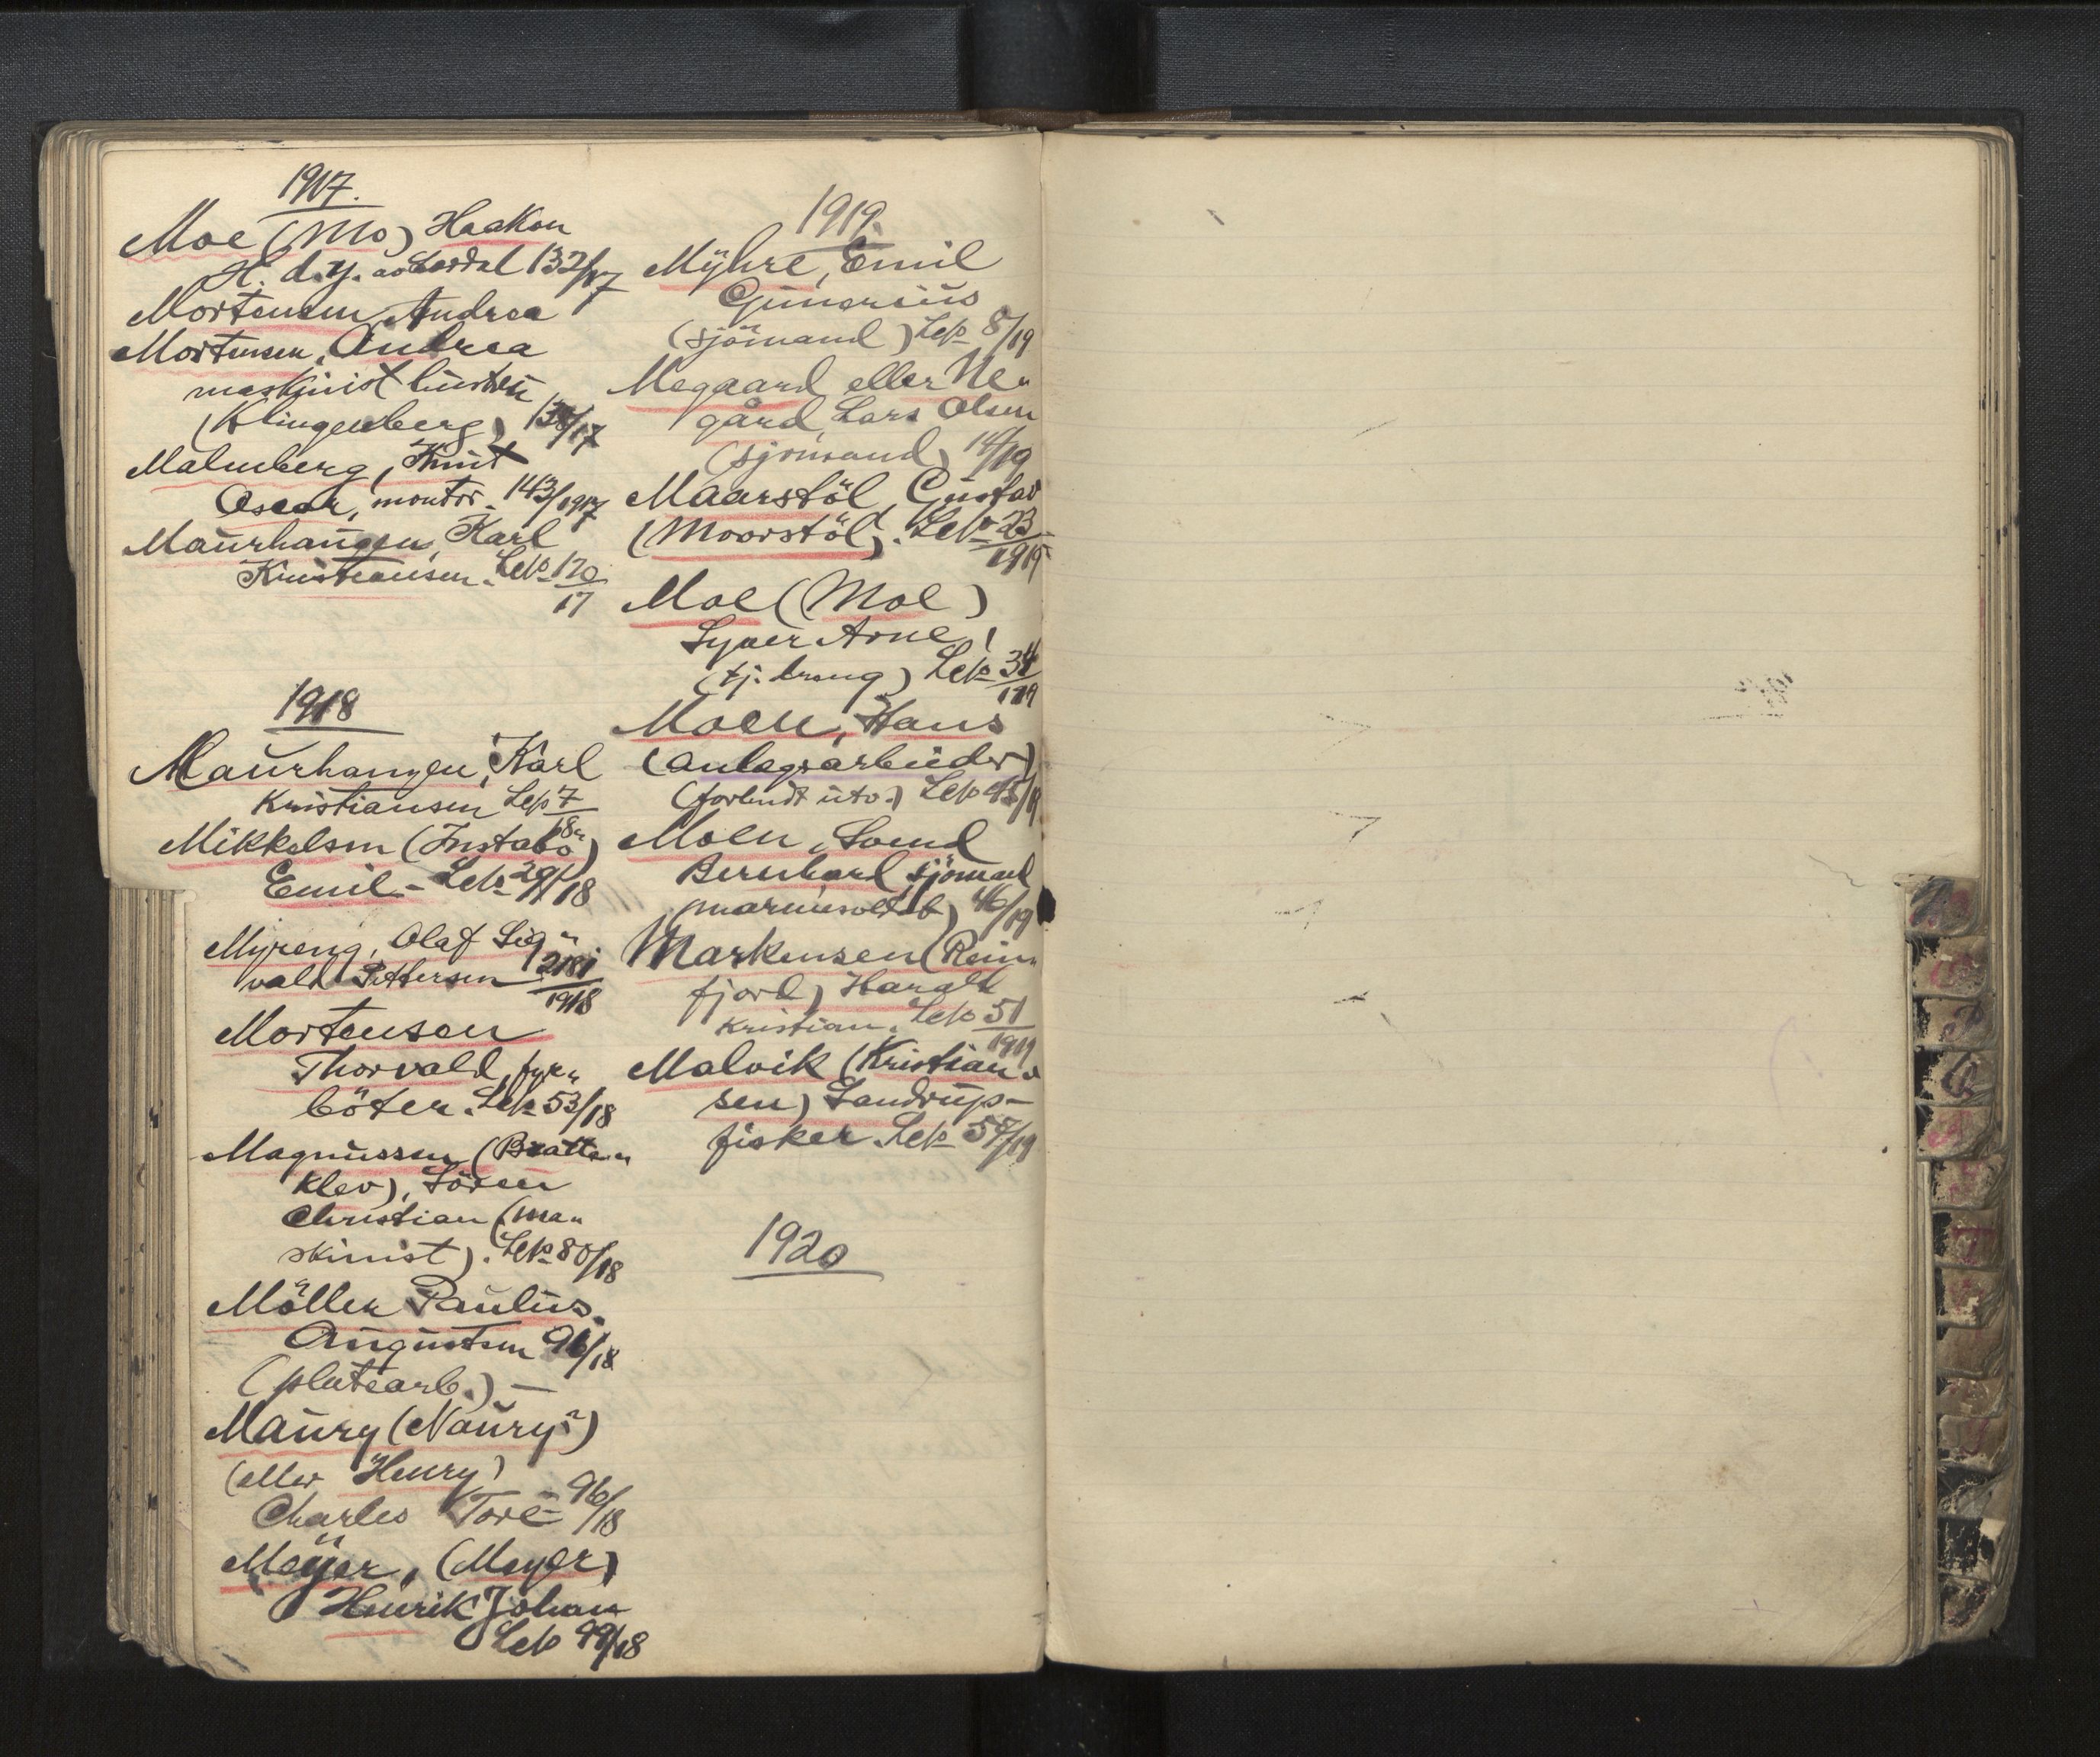 1917.
Moe (Mo) Haakon
H. d.y. av 132/17
Mortensen, Andrea
Mortensen, Andrea
maskinist hustru
(Klingenberg) 138/17
Malmberg, Knut
Oscar, montør. 143/1917
Maurhaugen, Karl
Kristiansen. Lep 170/17
1918
Maurhaugen, Karl
Kristiansen Lep 7/18
Mikkelsen (Instabö)
Emil - Lep 29/18
Myreng, Olaf Sig„
vald Pettersen 1918
Mortensen
Thorvald, fyr„
böter. Lep 53/18
Magnussen (Bratte„
klev), Sören
Christian (ma„
skinist). Lep 80/18
Möller Paulus
Augustsen 96/18
(platearb.) —
Maury (Naury?)
(eller Henry)
Charles Tore 96/18
Meÿer, (Meyer)
Henrik Johan
Lep 99/18
1919.
Mÿhre, Emil
Gunerius
(sjömand) Lep 8/19
Megaard eller Me„
gård, Lars Olsen
(sjømand) 14/19
Maarstöl, Gustav
(Moorstöl). Lep 23/1919
Moe (Moe)
Syver Arne,
(tj. dreng) Lep 34/1919
Moen, Hans
(anlægsarbeider)
(forbudt utv.) Lep 45/19
Moen, Svend
Bernhard, sjömand
(marinesoldat) 46/19
Markussen (Rein„
fjord) Harald
Kristian. Lep 51/1919
Malvik (Kristian„
sen) Sandrup -
fisker. Lep 57/19
1920